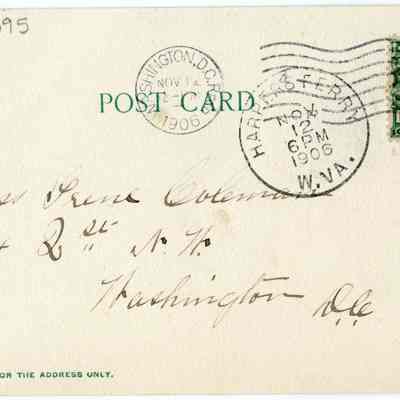 395
WASHINGTON, D.C.
NOV 12
1906
POST CARD
HARPERS FERRY
NOV
12
6 PM
1906
W. VA.
ss Irene Coleman
2 st N. W.
Washington D.C.
OR THE ADDRESS ONLY.